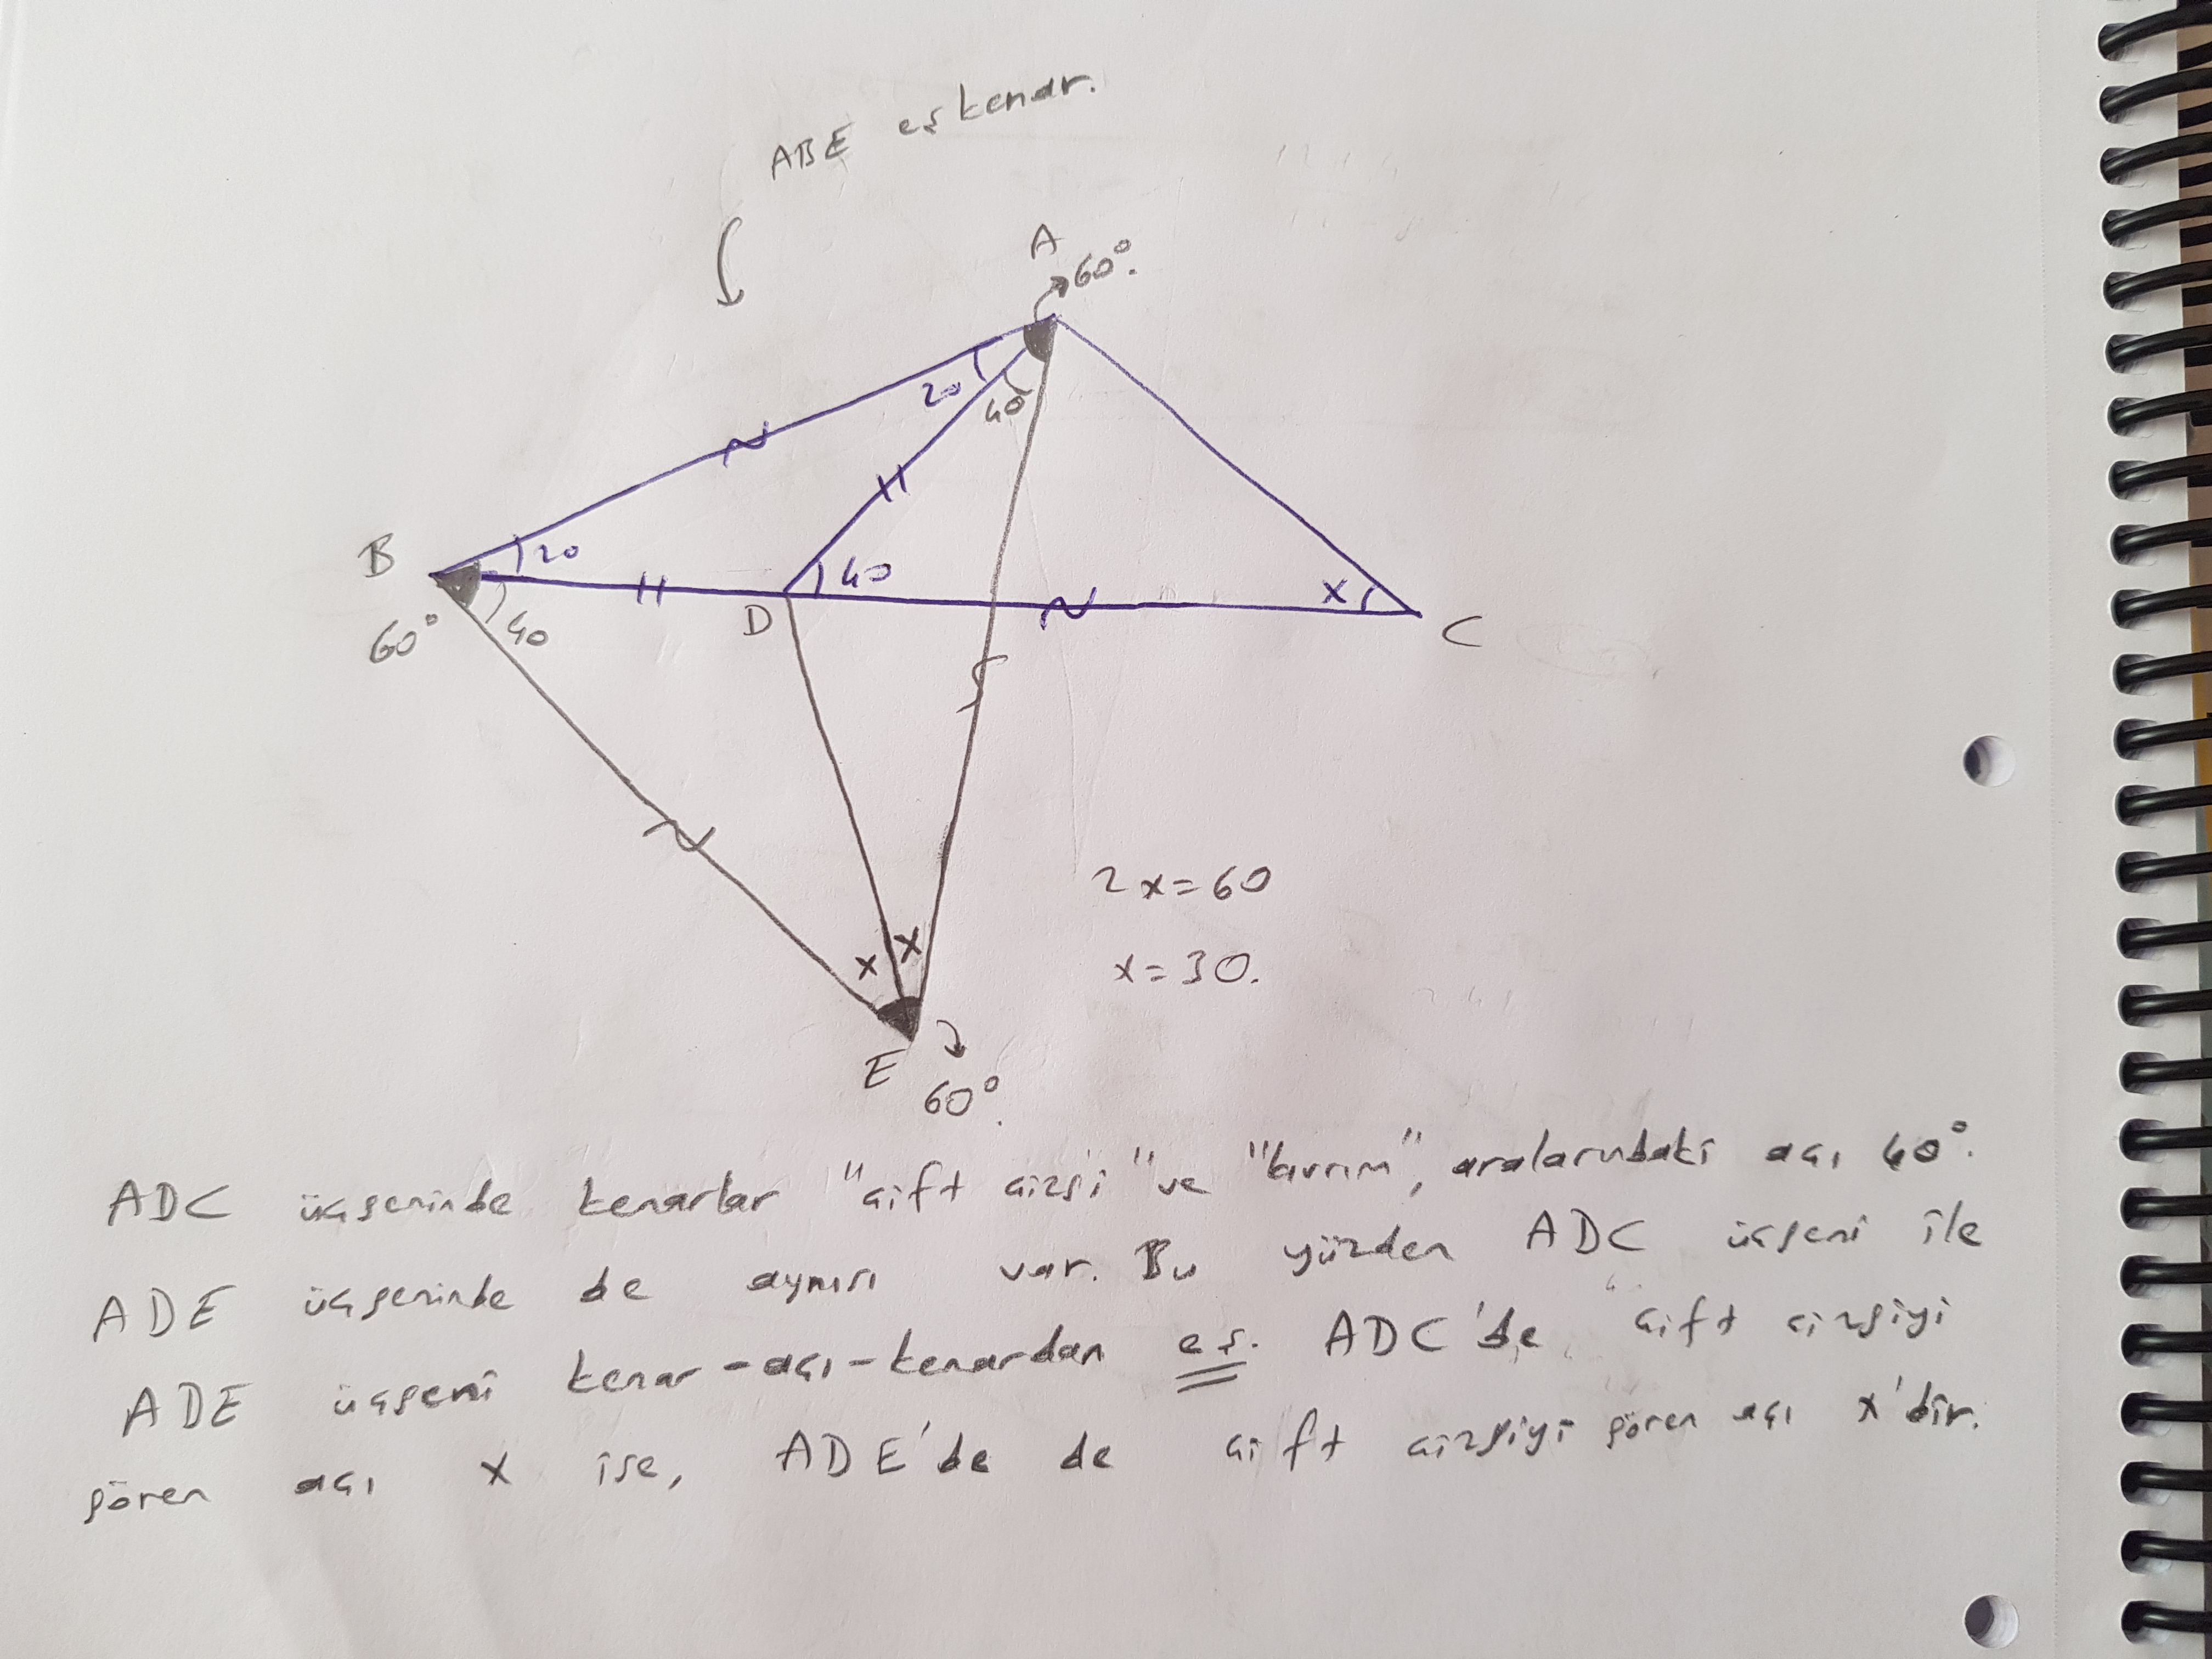 ABE eşkenar.
A
60°.
20
40
B
20
60°
40
D
40
x
C
2x=60
x x
x=30.
E
60°.
ADC üçgeninde kenarlar "çift çizgi" ve "kıvrım", aralarındaki açı 40°.
ADE üçgeninde de aynısı var. Bu yüzden ADC üçgeni ile
ADE üçgeni kenar-açı-kenardan eş. ADC'de çift çizgiyi
gören açı x ise, ADE'de de çift çizgiyi gören açı x'dir.